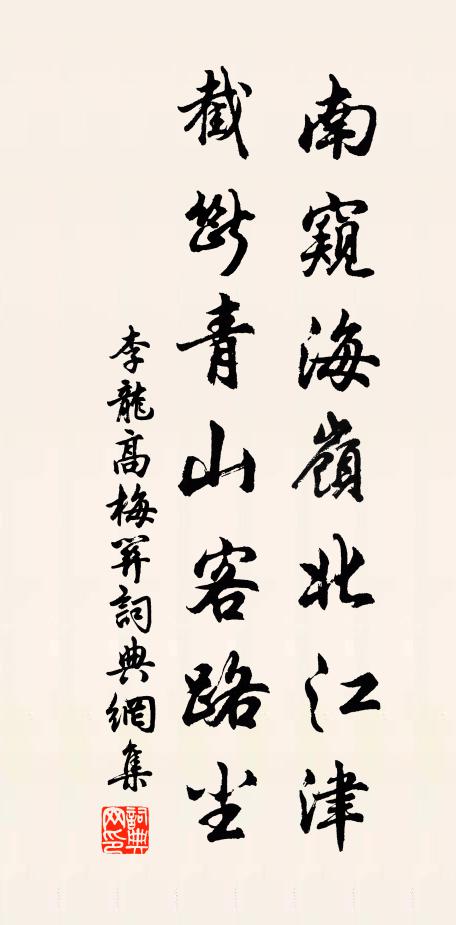 南窺海嶺北江津
截斷青山客路尘
李龍高梅关詞典網集
詞典网印